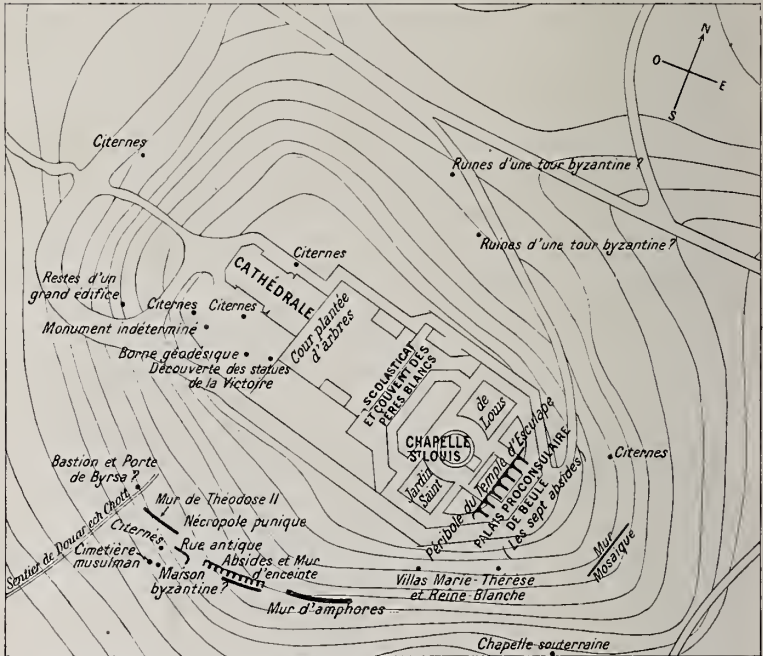 N
O
E
S
Citernes
Ruines d'une tour byzantine?
Ruines d'une tour byzantine?
Citernes
CATHÉDRALE
Cour plantée
d'arbres
Restes d'un
grand édifice
Citernes
Citernes
Monument indéterminé
Borne géodésique
Découverte des statues
de la Victoire
SCOLASTICAT
ET COUVENT DES
PÈRES BLANCS
CHAPELLE
ST LOUIS
Jardin
Saint
de
Louis
Péribole du Temple d'Esculape
PALAIS PROCONSULAIRE
DE BEULÉ
(Les sept absides)
Citernes
Bastion et Porte
de Byrsa?
Mur de Théodose II
Nécropole punique
Sentier de Douar ech Chott
Citernes
Rue antique
Cimetière
musulman
Absides et Mur
d'enceinte
Maison
byzantine?
Mur d'amphores
Villas Marie-Thérèse
et Reine-Blanche
Mur
Mosaïque
Chapelle souterraine